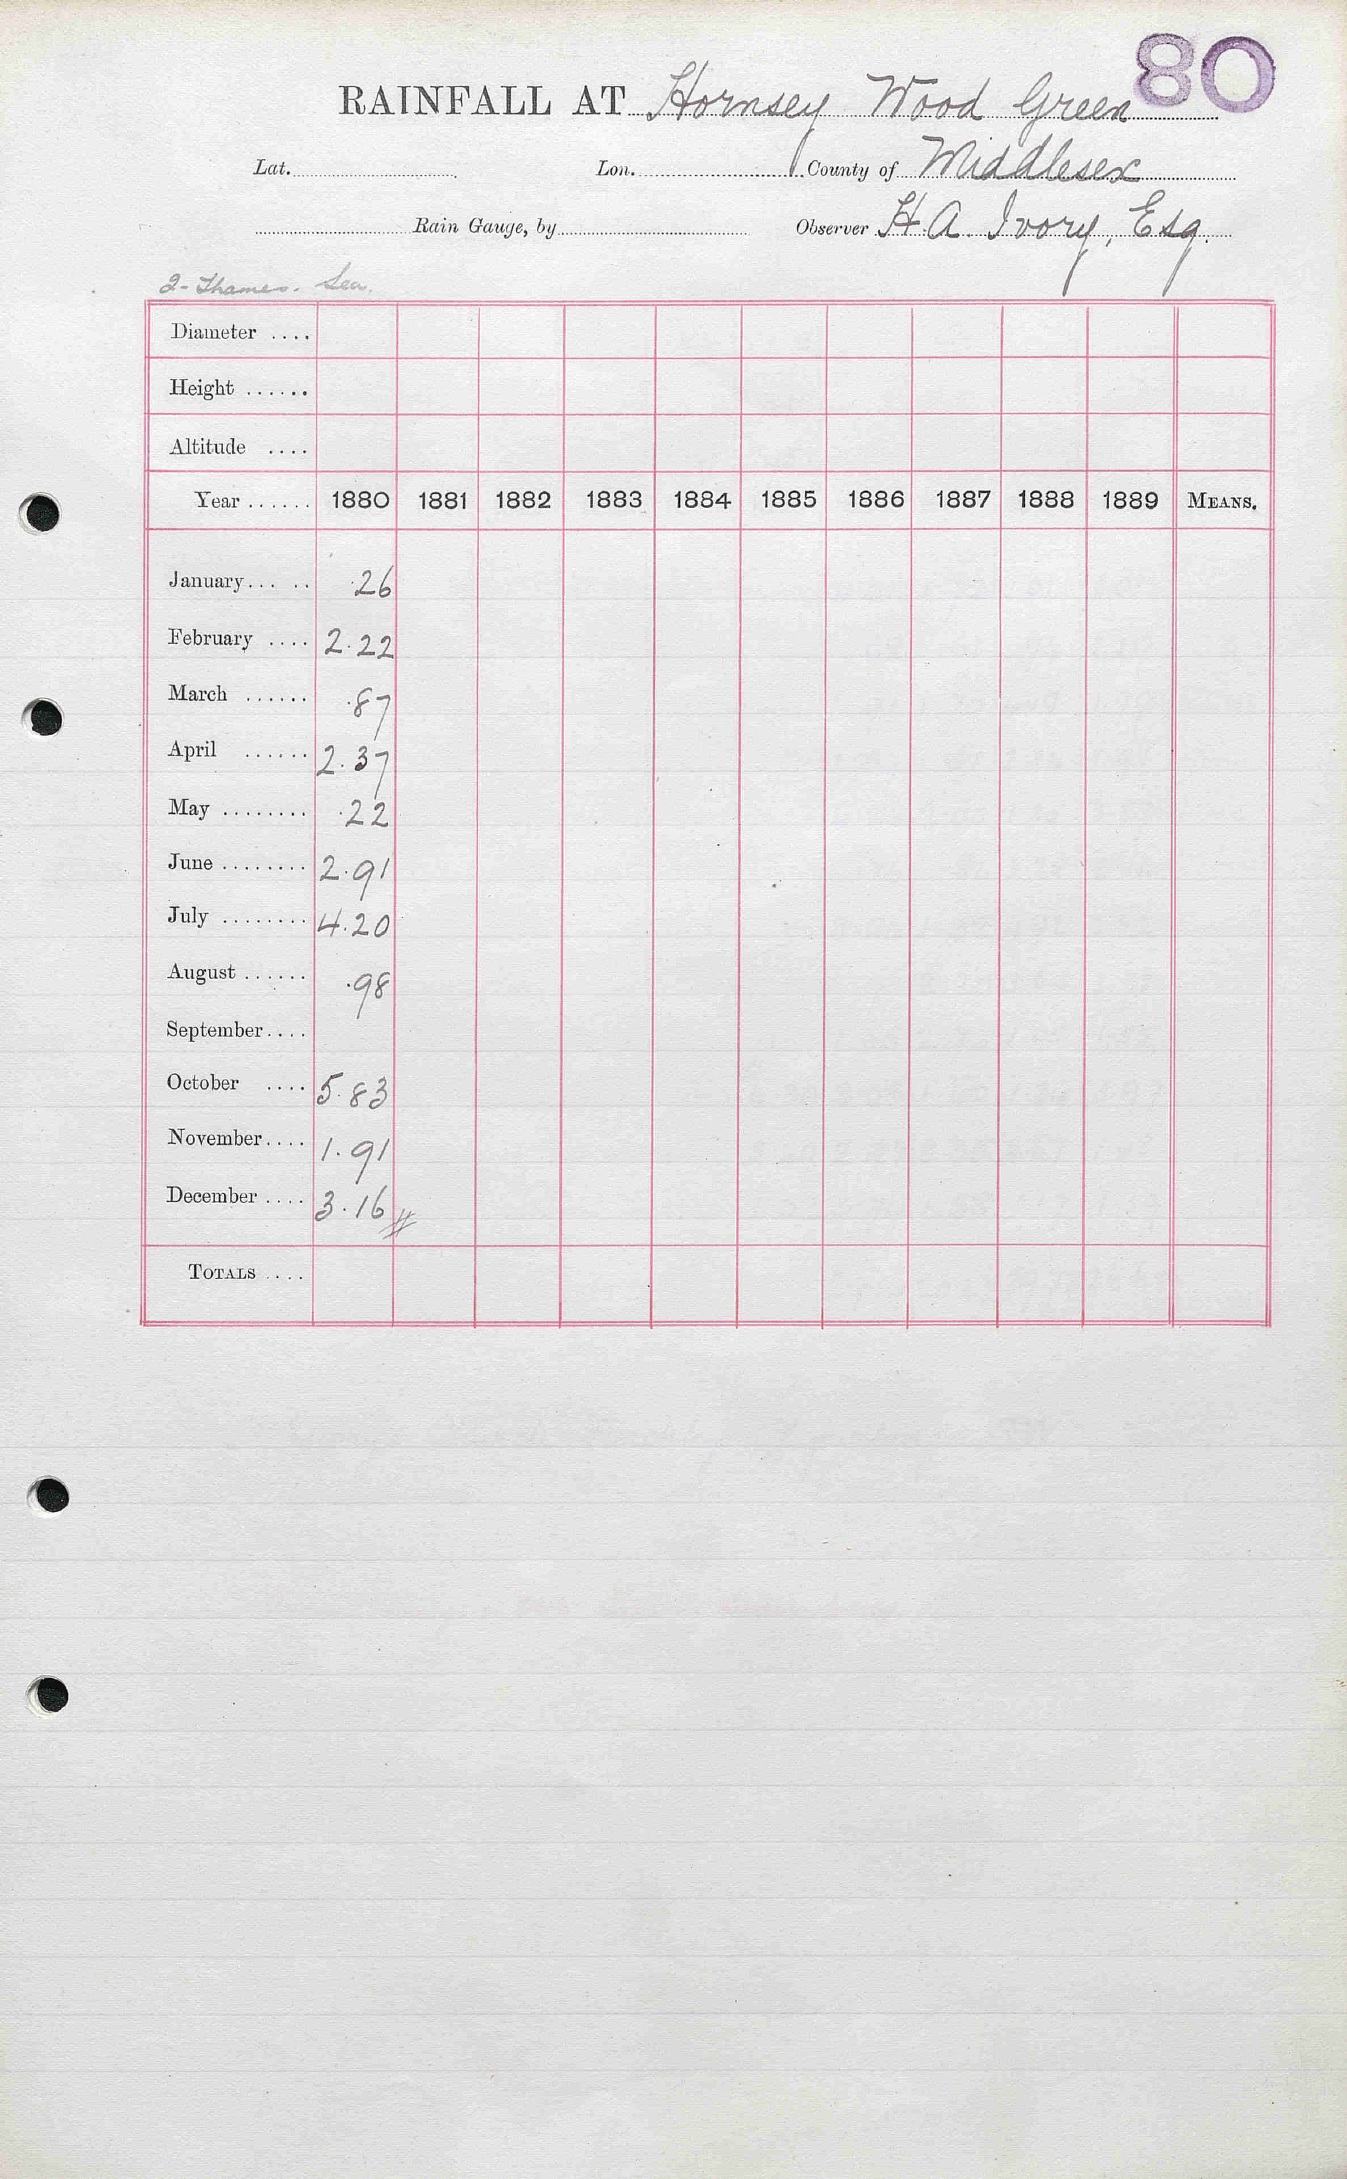 80
RAINFALL AT Hornsey Wood Green
Lat. Lon. County of Middlesex
Rain Gauge, by Observer H. A. Ivory, Esq.
2- Thames. Sea.
Diameter ....
Height ......
Altitude ....
Year ...... 1880 1881 1882 1883 1884 1885 1886 1887 1888 1889 MEANS.
January... .. .26
February .... 2.22
March ...... .87
April ...... 2.37
May ........ .22
June ........ 2.91
July ........ 4.20
August ...... .98
September....
October .... 5.83
November.... 1.91
December .... 3.16 //
TOTALS ....